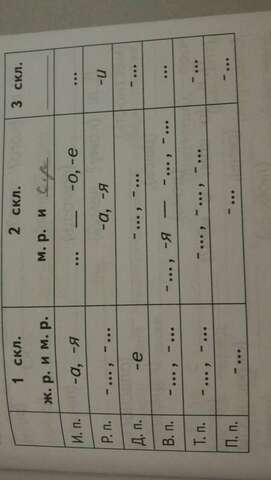 1 скл. 2 скл. 3 скл.
ж. р. и м. р. м. р. и с.р
И. п. -а, -я ... — -о, -е ...
Р. п. -..., -... -а, -я -и
Д. п. -е -..., -... -...
В. п. -..., -... -..., -я — -..., -... ...
Т. п. -..., -... -..., -..., -... -...
П. п. -... -... -...